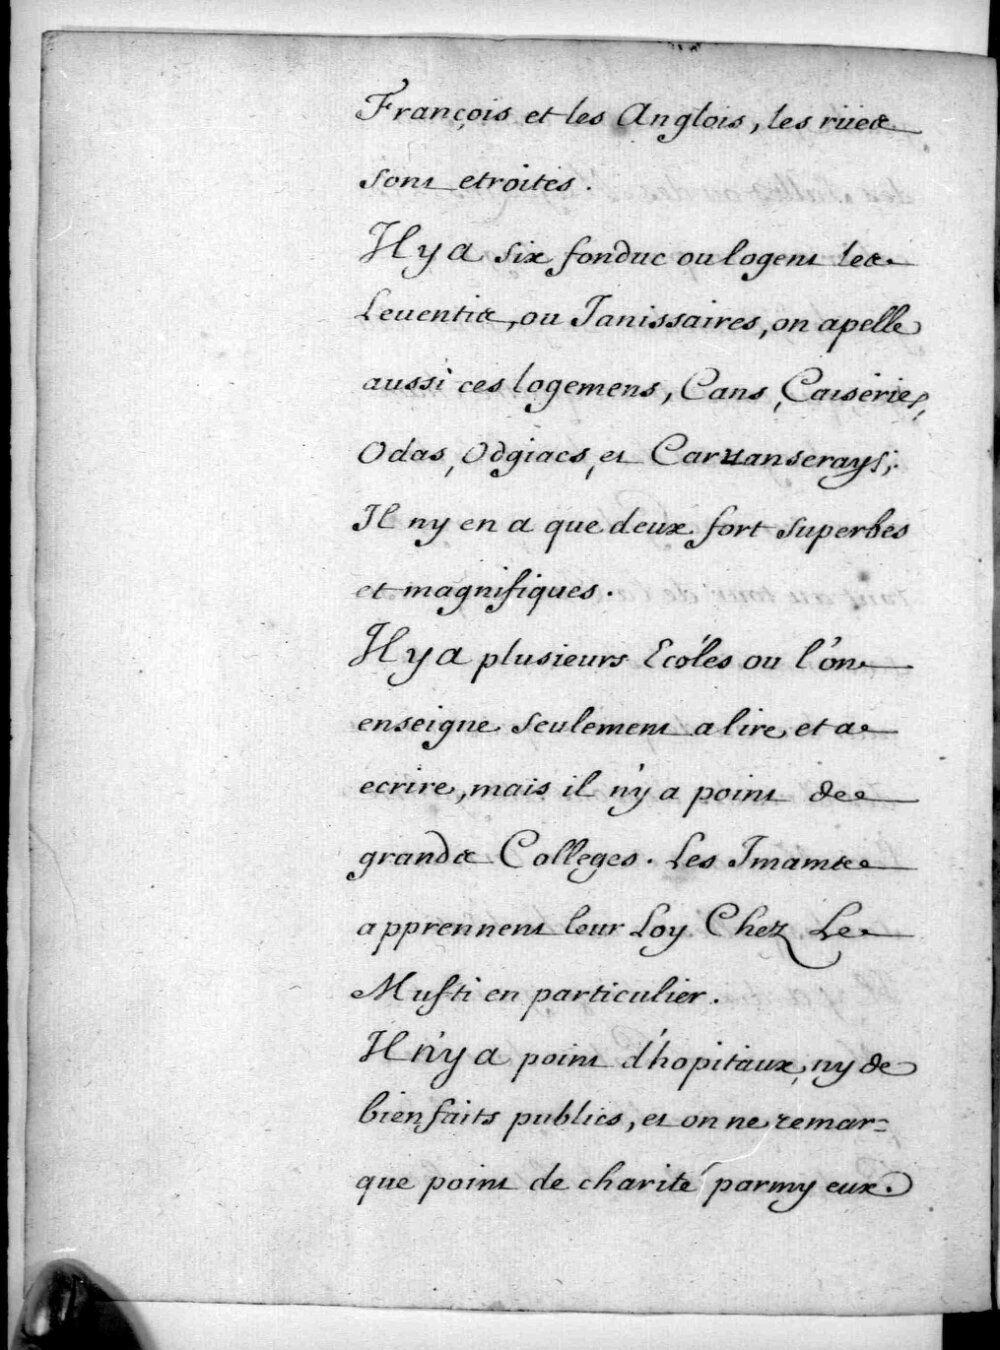 François et les Anglois, les rües
sont etroites.
Il y a six fonduc ou logent les
Leuentis, ou Janissaires, on apelle
aussi ces logemens, Cans, Caiseries,
Odas, Odgiacs, et Caruanserays;
Il ny en a que deux fort superbes
et magnifiques.
Il y a plusieurs Ecóles ou l'on
enseigne seulement a lire, et a
ecrire, mais il n'y a point de
grands Colleges. Les Imams
apprennent leur Loy Chez Le
Mufti en particulier.
Il n'y a point d'hopitaux, ny de
bienfaits publics, et on ne remar=
que point de charité parmy eux.